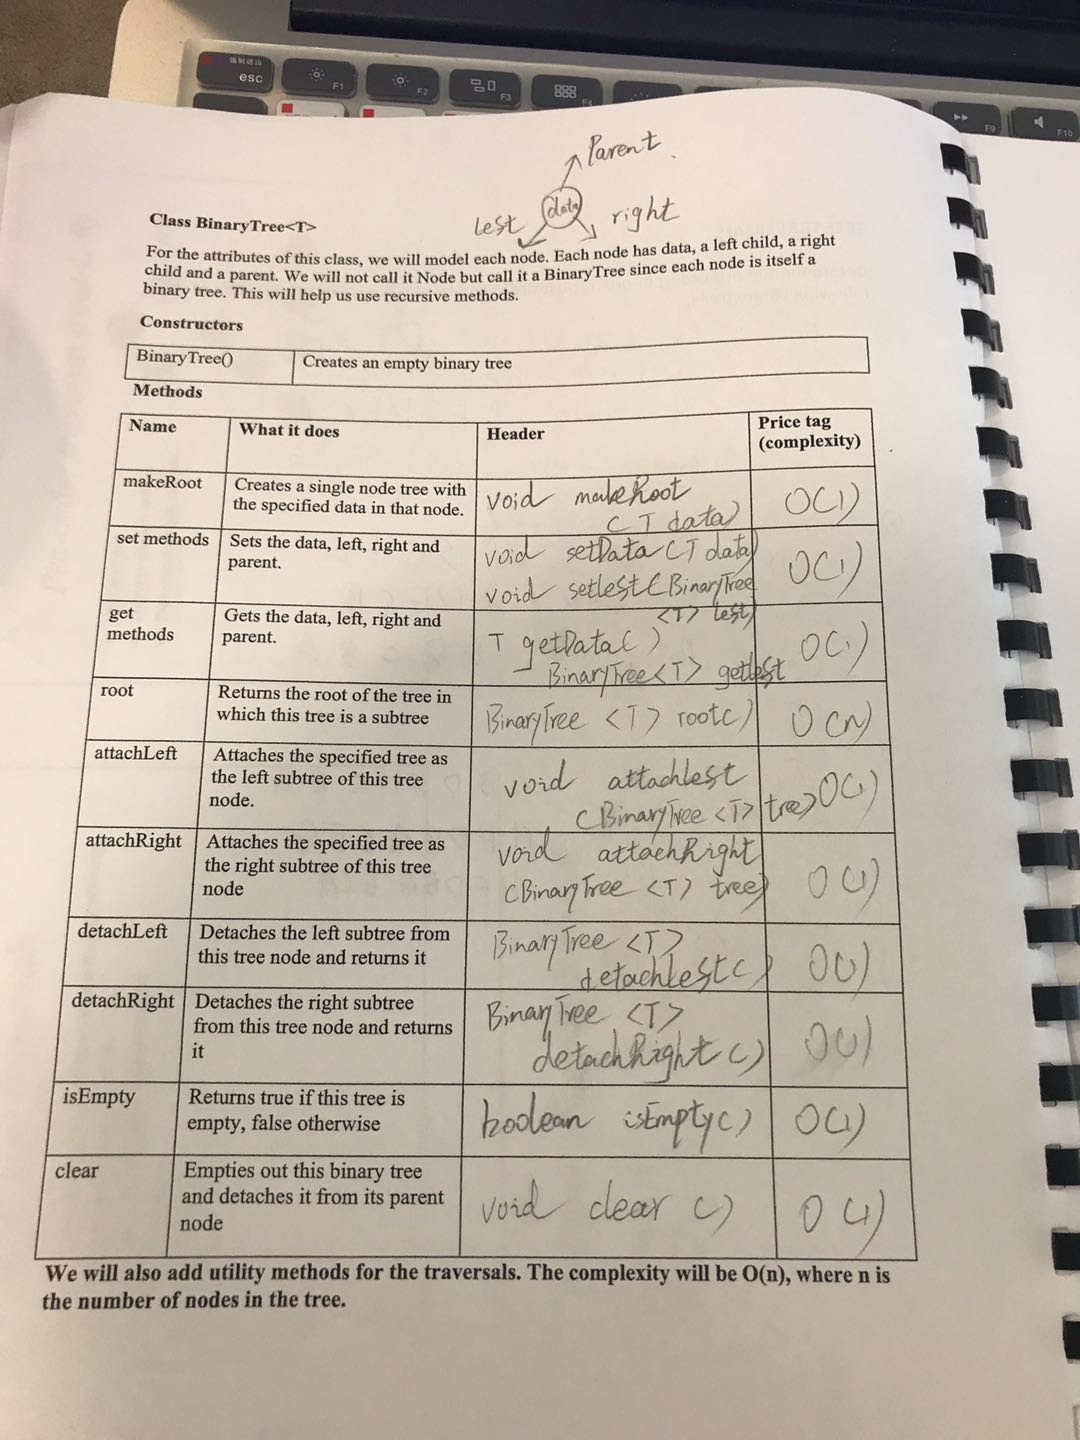 强制退出
esc
F1
F2
F3
F4
F9
F10
Parent
data
lest
right
Class BinaryTree<T>
For the attributes of this class, we will model each node. Each node has data, a left child, a right
child and a parent. We will not call it Node but call it a BinaryTree since each node is itself a
binary tree. This will help us use recursive methods.
Constructors
BinaryTree() Creates an empty binary tree
Methods
Name What it does Header Price tag
(complexity)
makeRoot Creates a single node tree with
the specified data in that node.
void makeRoot
(T data)
O(1)
set methods Sets the data, left, right and
parent.
void setData (T data)
void setlest (BinaryTree
<T> lest)
O(1)
get
methods
Gets the data, left, right and
parent.
T getData()
BinaryTree<T> getlest
O(1)
root Returns the root of the tree in
which this tree is a subtree
BinaryTree <T> root()
O(n)
attachLeft Attaches the specified tree as
the left subtree of this tree
node.
void attachlest
(BinaryTree <T> tree)
O(1)
attachRight Attaches the specified tree as
the right subtree of this tree
node
void attachRight
(BinaryTree <T> tree)
O(1)
detachLeft Detaches the left subtree from
this tree node and returns it
BinaryTree <T>
detachlest()
O(1)
detachRight Detaches the right subtree
from this tree node and returns
it
BinaryTree <T>
detachRight ()
O(1)
isEmpty Returns true if this tree is
empty, false otherwise
boolean isEmpty()
O(1)
clear Empties out this binary tree
and detaches it from its parent
node
void clear ()
O(1)
We will also add utility methods for the traversals. The complexity will be O(n), where n is
the number of nodes in the tree.